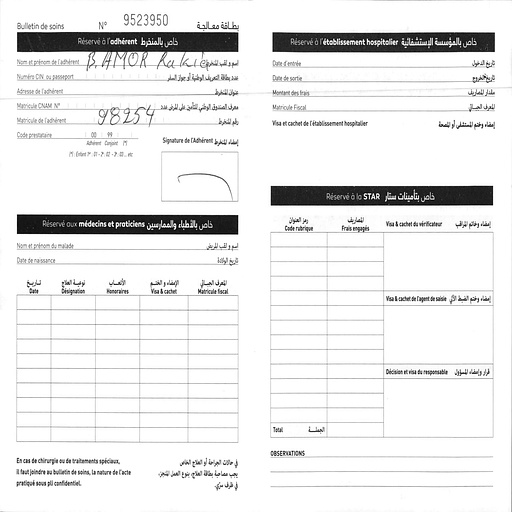 Bulletin de soins N° 9523950 بطاقة معالجة
Réservé à l'adhérent خاص بالمنخرط
Nom et prénom de l'adhérent B. AMOR اسم و لقب المنخرط
Numéro CIN ou passeport عدد بطاقة التعريف الوطنية أو جواز السفر
Adresse de l'adhérent عنوان المنخرط
Matricule CNAM N° معرف الصندوق الوطني للتأمين على المرض عدد
Matricule de l'adhérent 98254 رقم المنخرط
Code prestataire 00 99
Adhérent Conjoint (*)
(*) : Enfant 1er : 01 - 2e : 02 - 3e : 03 ... etc
Signature de l'Adhérent إمضاء المنخرط
Réservé aux médecins et praticiens خاص بالأطباء والممارسين
Nom et prénom du malade اسم و لقب المريض
Date de naissance تاريخ الولادة
تاريخ نوعية العلاج الأتعاب الإمضاء و الختم المعرف الجبائي
Date Désignation Honoraires Visa & cachet Matricule fiscal
En cas de chirurgie ou de traitements spéciaux,
il faut joindre au bulletin de soins, la nature de l'acte
pratiqué sous pli confidentiel.
في حالات الجراحة أو العلاج الخاص
يجب مصاحبة بطاقة العلاج، بنوع العمل المنجز،
في ظرف سري.
Réservé à l'établissement hospitalier خاص بالمؤسسة الإستشفائية
Date d'entrée تاريخ الدخول
Date de sortie تاريخ الخروج
Montant des frais مقدار المصاريف
Matricule Fiscal المعرف الجبائي
Visa et cachet de l'établissement hospitalier إمضاء وختم المستشفى أو المصحة
Réservé à la STAR خاص بتأمينات ستار
رمز العنوان المصاريف
Code rubrique Frais engagés
Visa & cachet du vérificateur إمضاء وخاتم المراقب
Visa & cachet de l'agent de saisie إمضاء وختم الضبط الآلي
Décision et visa du responsable قرار وإمضاء المسؤول
Total الجملة
OBSERVATIONS